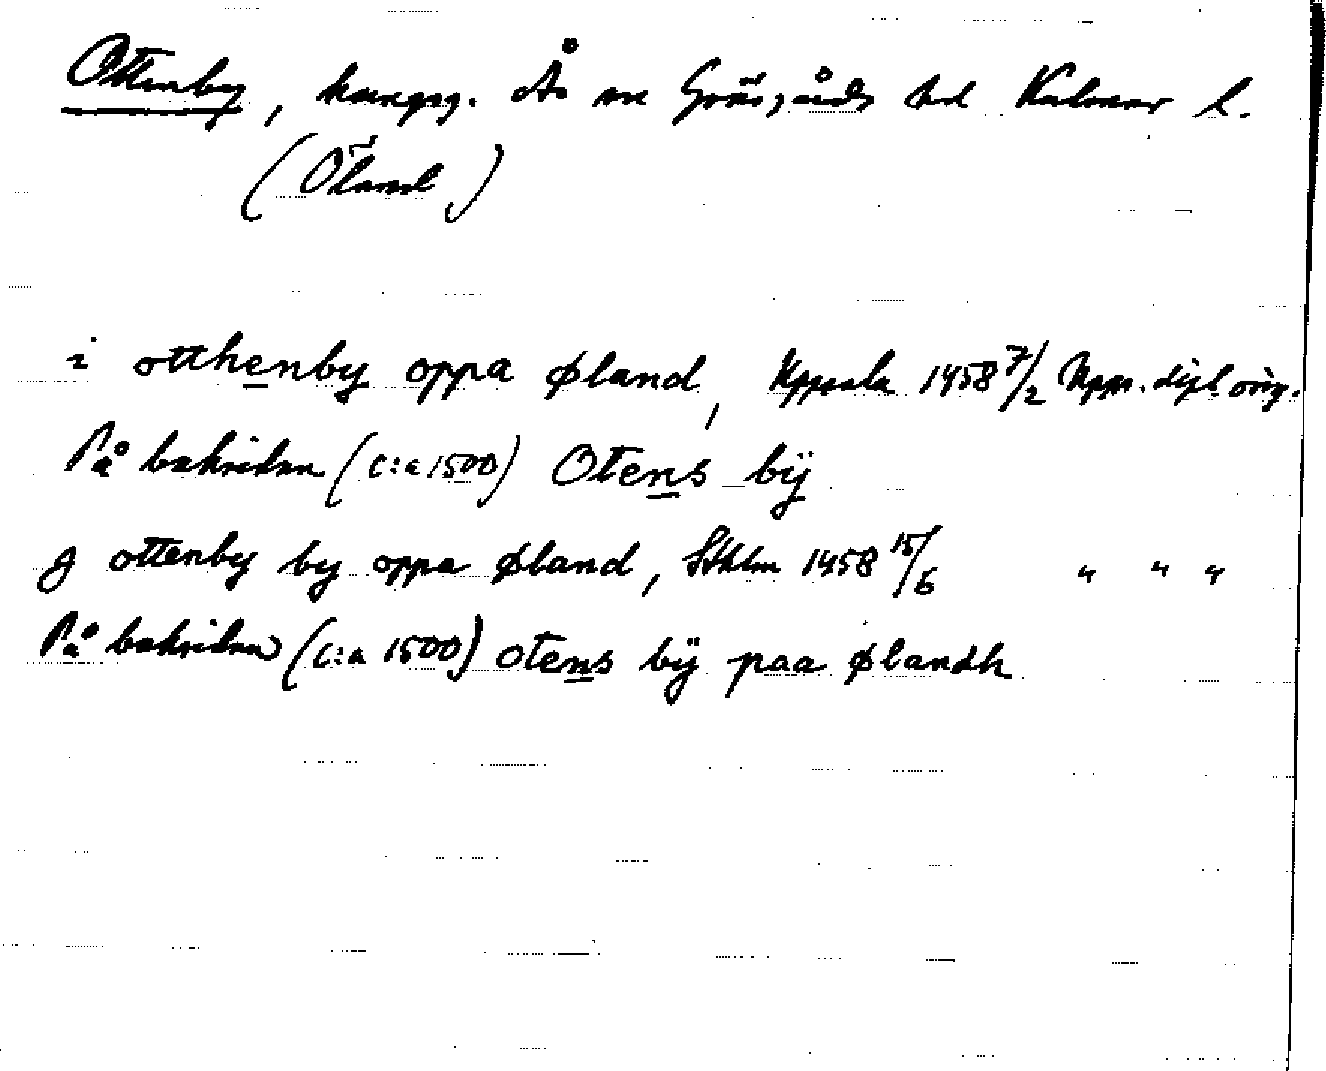 Ottenby, kungsg. Ås sn Gräsgårds hd Kalmar l.
(Öland)
i otthenby oppa øland, Uppsala 1458 7/2 Upps. dipl. orig.
På baksidan (c:a 1500) Otens bÿ
J ottenby by oppa øland, Sthlm 1458 15/6 " " "
På baksidan (c:a 1500) otens bÿ paa ølandh